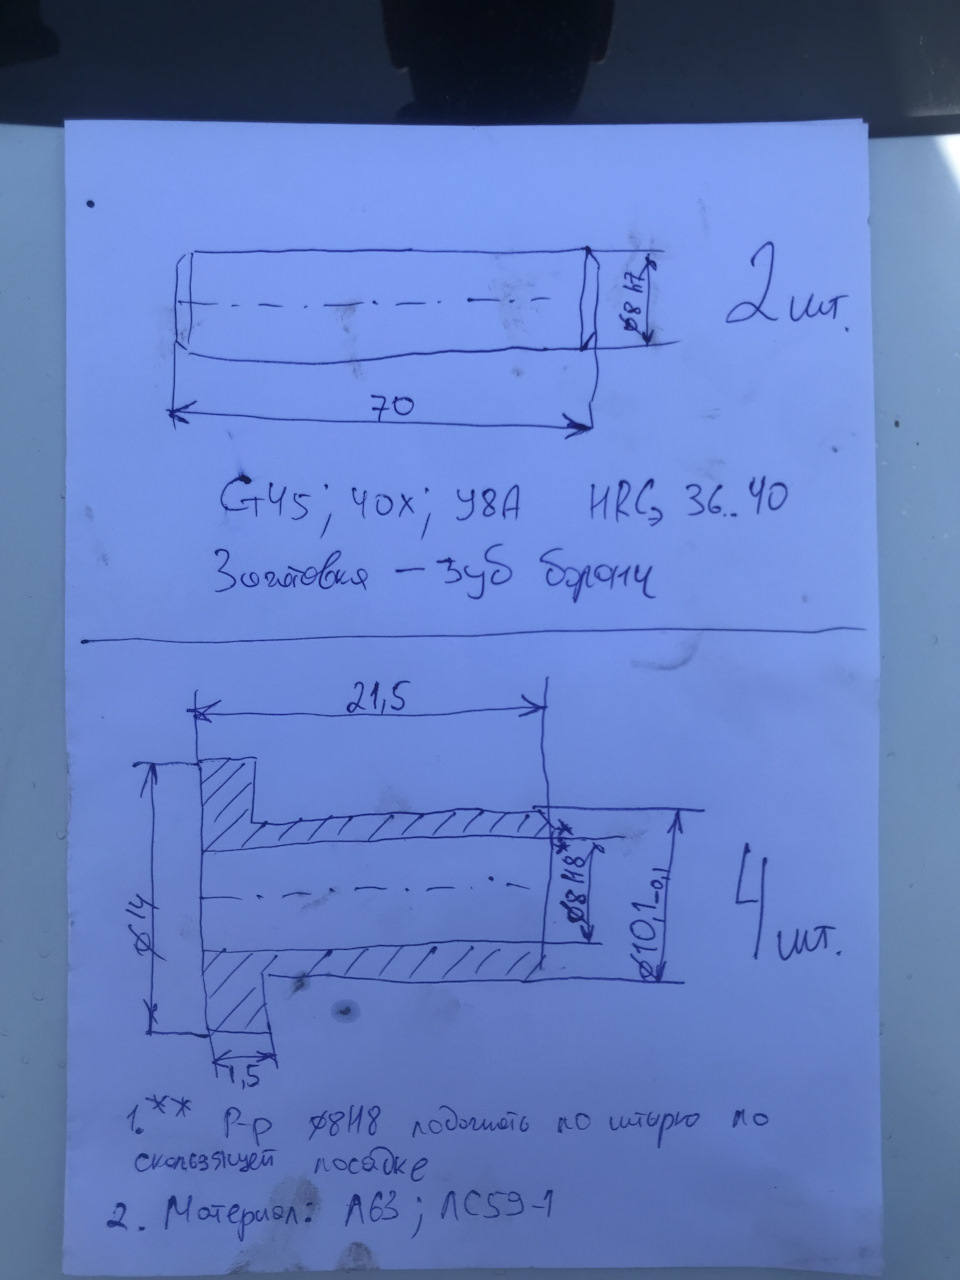 ⌀8 h7
2 шт.
70
Ст45; 40х; У8А HRCэ 36..40
Заготовка – зуб бороны
21,5
⌀14
⌀8H8**
⌀10,1-0,1
4 шт.
1,5
1.** Р-р ⌀8H8 подогнать по штырю по
скользящей посадке
2. Материал: Л63; ЛС59-1